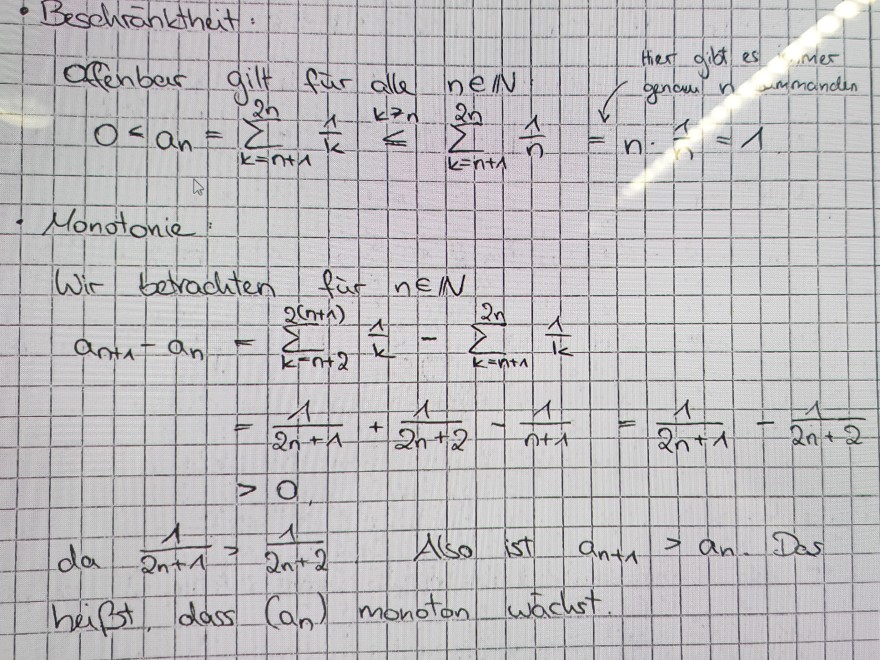 • Beschränktheit:
Offenbar gilt für alle n∈ℕ
Hier gibt es
genau n
0 < aₙ = ∑_{k=n+1}^{2n} 1/k ≤^{k>n} ∑_{k=n+1}^{2n} 1/n = n · 1/n = 1
• Monotonie:
Wir betrachten für n∈ℕ
aₙ₊₁ - aₙ = ∑_{k=n+2}^{2(n+1)} 1/k - ∑_{k=n+1}^{2n} 1/k
= 1/(2n+1) + 1/(2n+2) - 1/(n+1) = 1/(2n+1) - 1/(2n+2)
> 0,
da 1/(2n+1) > 1/(2n+2) Also ist aₙ₊₁ > aₙ. Das
heißt, dass (aₙ) monoton wächst.